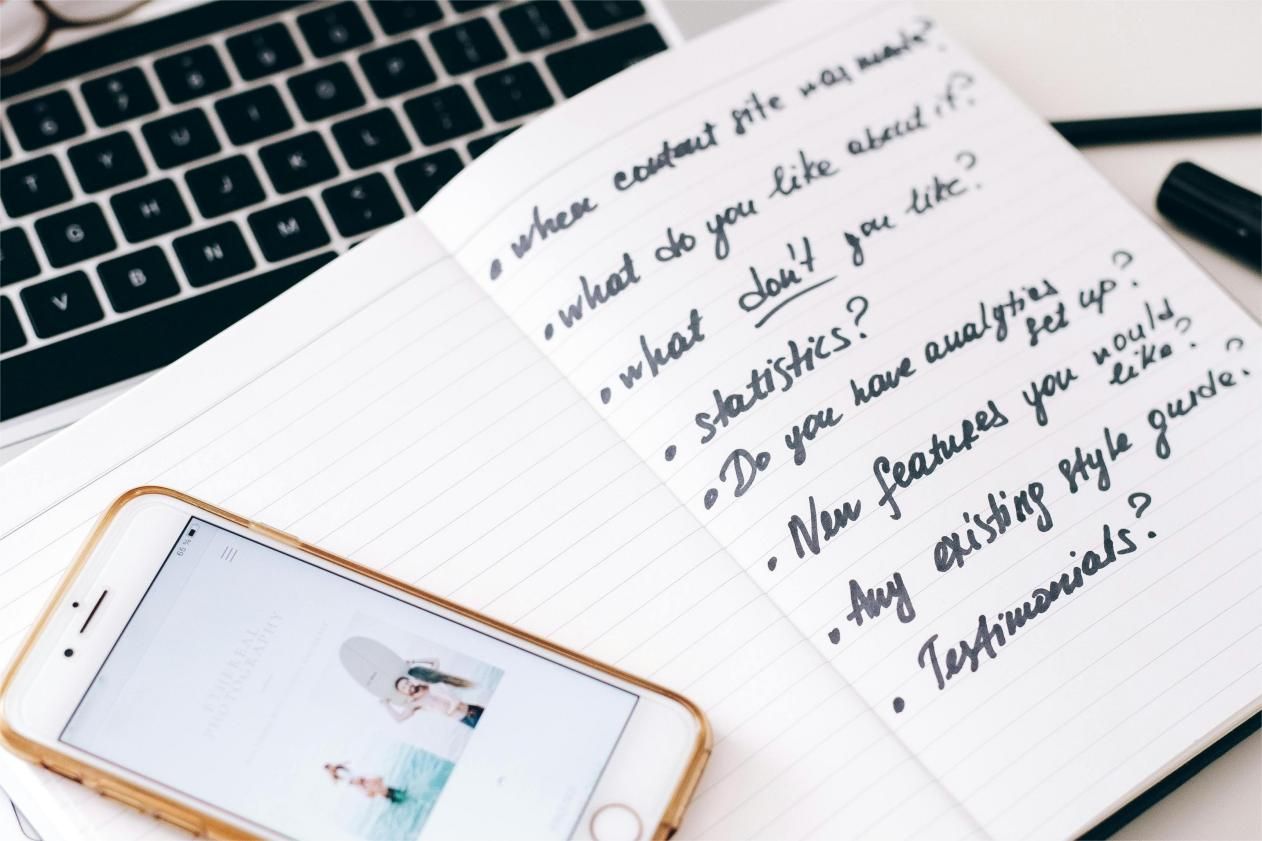 • when contact site was made?
• what do you like about it?
• what don't you like?
• statistics?
• Do you have analytics
set up?
• New features you would
like?
• Any existing style guide?
• Testimonials?
65 %
ETHEREAL
PHOTOGRAPHY
T
Y
U
I
O
P
G
H
J
K
L
V
B
N
M